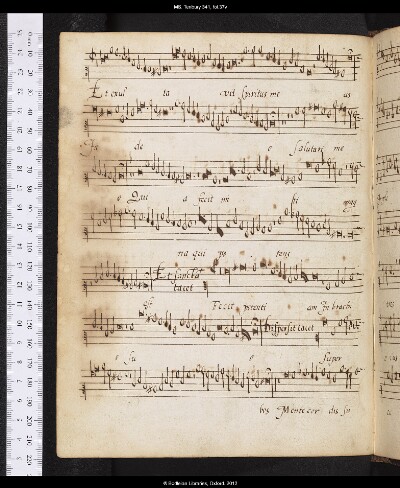 MS. Tenbury 341, fol.37v
Et exul ta vit spiritus me us
In de o salutari me
o Qui a fecit mi hi mag
na qui po tens
Et sanctu
tacet
Fecit potenti am In brach
Dispersit tacet
o su o super
bos Mente cor dis su
© Bodleian Libraries, Oxford, 2012